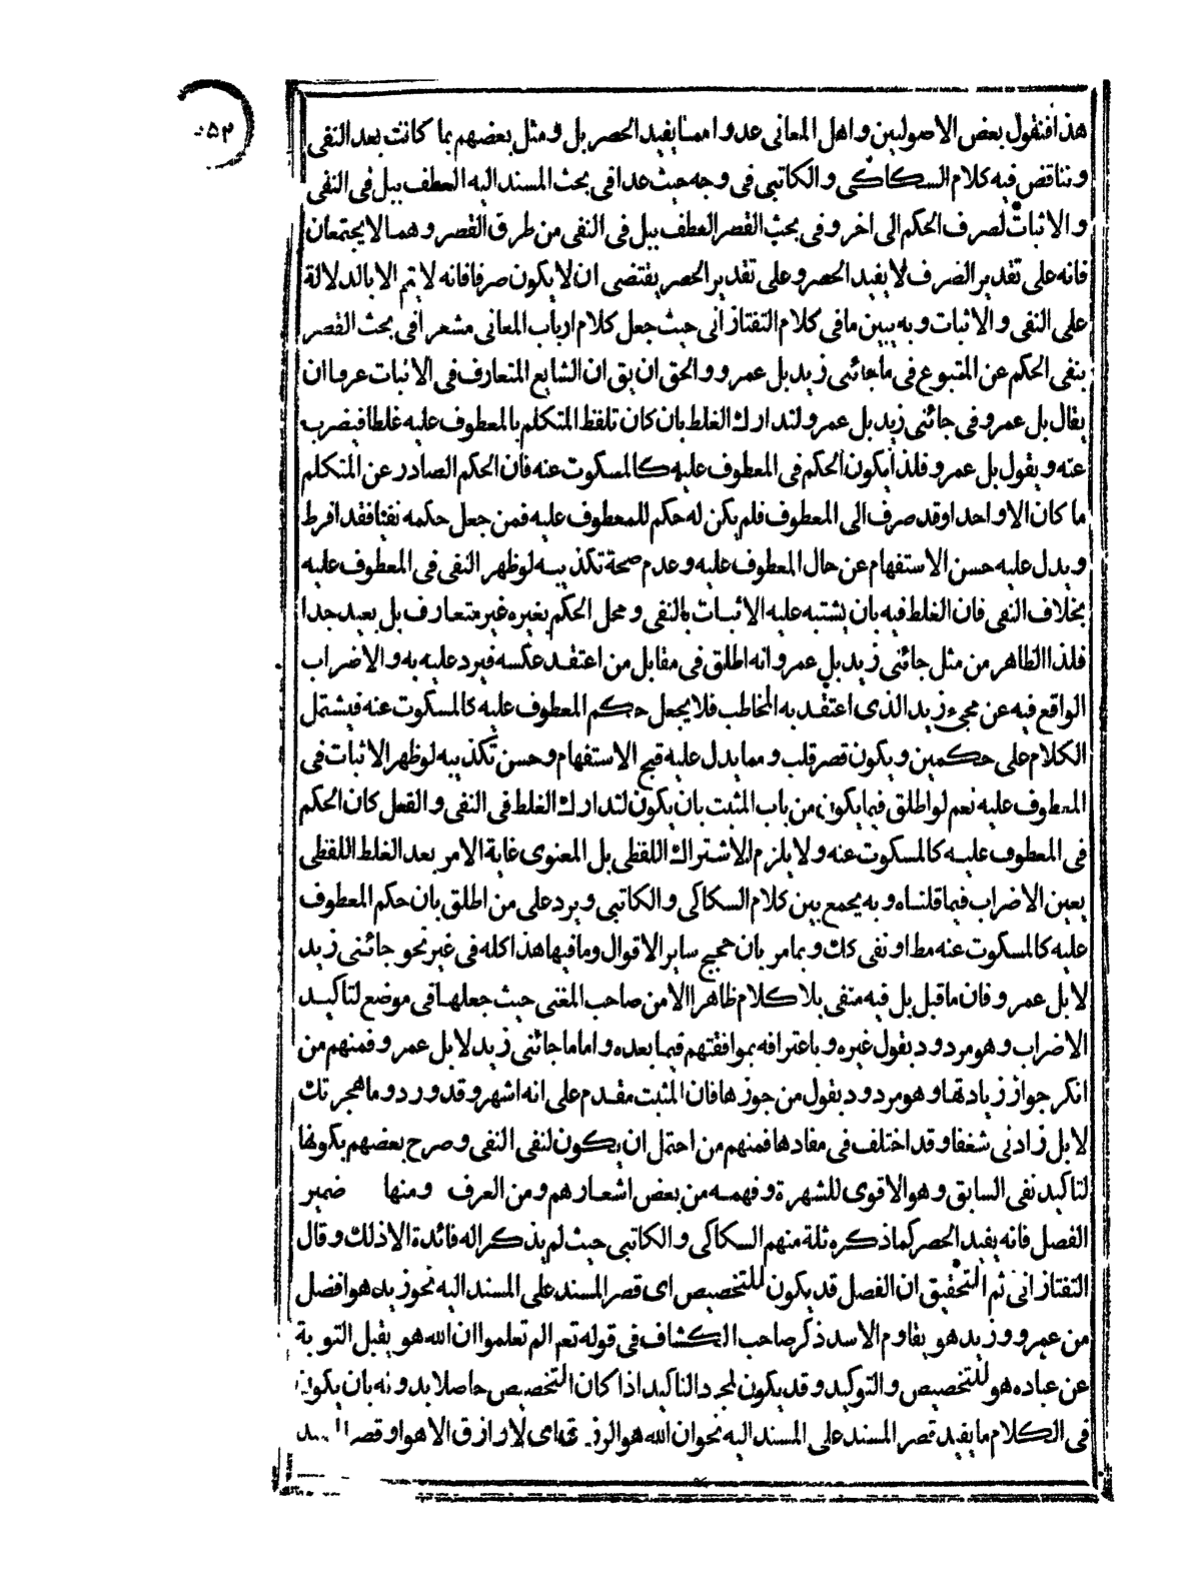 ۲۵۳
هذا فنقول بعض الاصوليين و اهل المعانى عدوا مما يفيد الحصر بل و مثل بعضهم بما كانت بعد النفى
و تناقض فيه كلام السكاكى و الكاتبى فى وجه حيث عدا فى بحث المسند اليه العطف ببل فى النفى
و الاثبات لصرف الحكم الى اخر و فى بحث القصر العطف ببل فى النفى من طرق القصر و هما لا يجتمعان
فانه على تقدير الصرف لا يفيد الحصر و على تقدير الحصر يقتضى ان لا يكون صرفا فانه لا يتم الا بالدلالة
على النفى و الاثبات و به يبين ما فى كلام التفتازانى حيث جعل كلام ارباب المعانى مشعرا فى بحث القصر
بنفى الحكم عن المتبوع فى ما جائنى زيد بل عمرو و الحق ان يق ان الشايع المتعارف فى الاثبات عرفا ان
يقال بل عمرو فى جائنى زيد بل عمرو لتدارك الغلط بان كان تلفظ المتكلم بالمعطوف عليه غلطا فيضرب
عنه و يقول بل عمرو فلذا يكون الحكم فى المعطوف عليه كالمسكوت عنه فان الحكم الصادر عن المتكلم
ما كان الا واحدا و قد صرف الى المعطوف فلم يكن له حكم للمعطوف عليه فمن جعل حكمه نفيا فقد افرط
و يدل عليه حسن الاستفهام عن حال المعطوف عليه و عدم صحة تكذيبه لو ظهر النفى فى المعطوف عليه
بخلاف النفى فان الغلط فيه بان يشتبه عليه الاثبات بالنفى و محل الحكم بغيره غير متعارف بل بعيد جدا
فلذا الظاهر من مثل جائنى زيد بل عمرو انه اطلق فى مقابل من اعتقد عكسه فيرد عليه به و الاضراب
الواقع فيه عن مجىء زيد الذى اعتقد به المخاطب فلا يجعل حكم المعطوف عليه كالمسكوت عنه فيشتمل
الكلام على حكمين و يكون قصر قلب و مما يدل عليه قبح الاستفهام و حسن تكذيبه لو ظهر الاثبات فى
المعطوف عليه نعم لو اطلق فيما يكون من باب المثبت بان يكون لتدارك الغلط فى النفى و الفعل كان الحكم
فى المعطوف عليه كالمسكوت عنه و لا يلزم الاشتراك اللفظى بل المعنوى غاية الامر بعد الغلط اللفظى
يعين الاضراب فيما قلناه و به يجمع بين كلام السكاكى و الكاتبى و يرد على من اطلق بان حكم المعطوف
عليه كالمسكوت عنه مط او نفى كك و بما مر بان حجج ساير الاقوال و ما فيها هذا كله فى غير نحو جائنى زيد
لا بل عمرو فان ما قبل بل فيه منفى بلا كلام ظاهرا الا من صاحب المغنى حيث جعلها فى موضع لتاكيد
الاضراب و هو مردود بقول غيره و باعترافه بموافقتهم فيما بعده و اما ما جائنى زيد لا بل عمرو فمنهم من
انكر جواز زيادتها و هو مردود بقول من جوزها فان المثبت مقدم على انه اشهر و قد ورد و ما هجرتك
لا بل زادنى شغفا و قد اختلف فى مفادها فمنهم من احتمل ان يكون لنفى النفى و صرح بعضهم بكونها
لتاكيد نفى السابق و هو الاقوى للشهرة و فهمه من بعض اشعارهم و من العرف و منها ضمير
الفصل فانه يفيد الحصر كما ذكره ثلة منهم السكاكى و الكاتبى حيث لم يذكرا له فائدة الا ذلك و قال
التفتازانى ثم التحقيق ان الفصل قد يكون للتخصيص اى قصر المسند على المسند اليه نحو زيد هو افضل
من عمرو و زيد هو يقاوم الاسد ذكر صاحب الكشاف فى قوله تعم الم تعلموا ان الله هو يقبل التوبة
عن عباده هو للتخصيص و التوكيد و قد يكون لمجرد التاكيد اذا كان التخصيص حاصلا بدونه بان يكون
فى الكلام ما يفيد قصر المسند على المسند اليه نحو ان الله هو الرزاق اى لا رازق الا هو او قصر